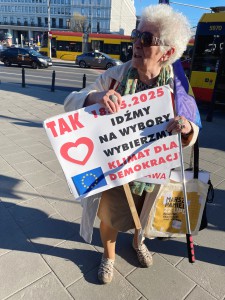 TAK
18.05.2025
IDŹMY
NA WYBORY
WYBIERZMY
KLIMAT DLA
DEMOKRACJI